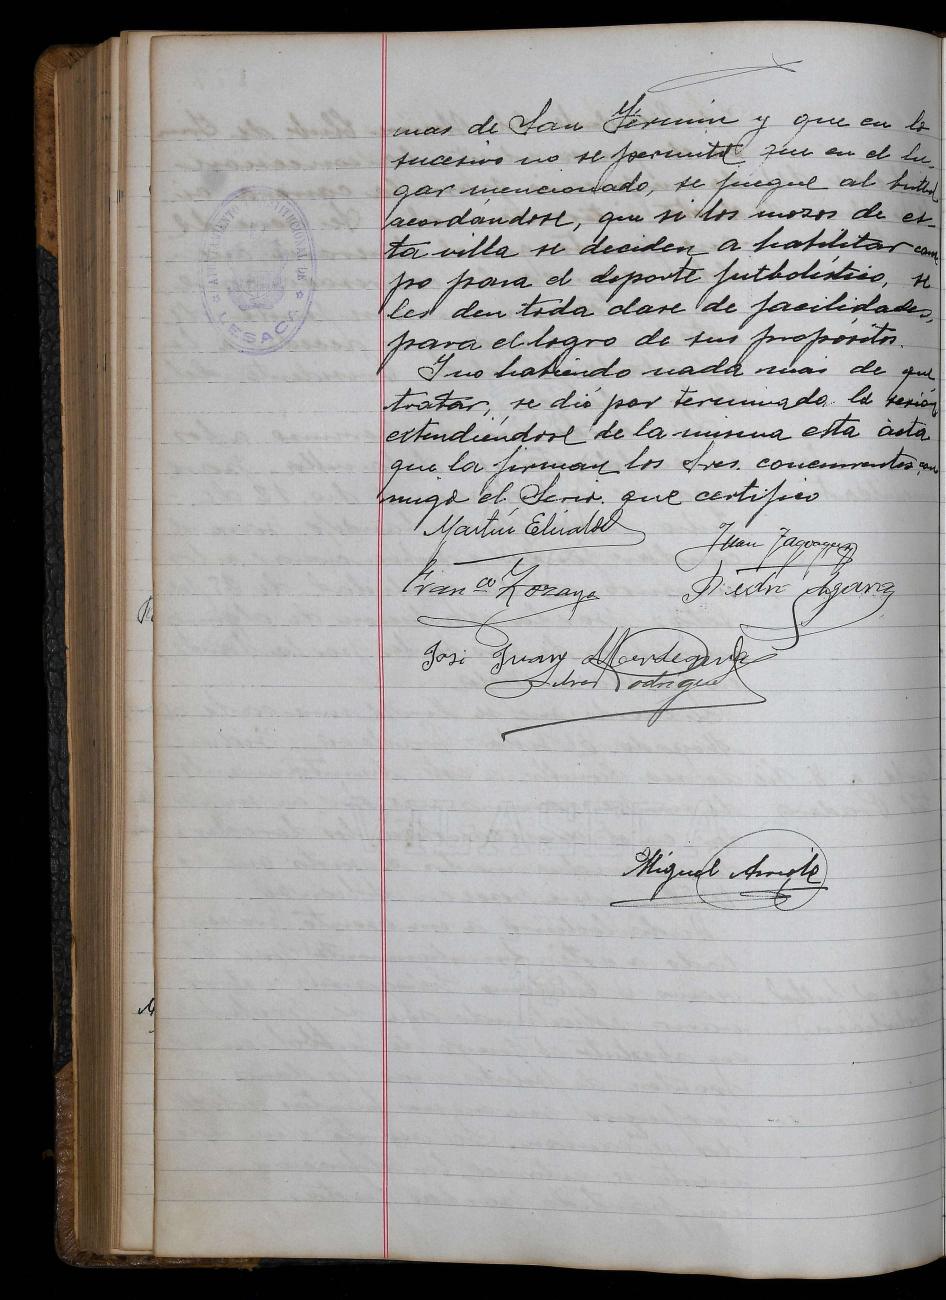 mas de San Fermín y que en lo
sucesivo no se permita que en el lu-
gar mencionado, se juegue al
acordándose, que si los mozos de es-
ta villa se deciden a habilitar cam
po para el deporte futbolístico, se
les den toda clase de facilidades,
para el logro de sus propósitos.
Y no habiendo nada mas de que
tratar, se dió por terminada la sesión
extendiéndose de la misma esta acta
que la firman los Sres. concurrentes con
migo el Scrio. que certifico
Martín Elizalde
Juan
Franco Zozaya
José Juan
Rodriguez
Miguel
AYUNTAMIENTO CONSTITUCIONAL DE
LESACA